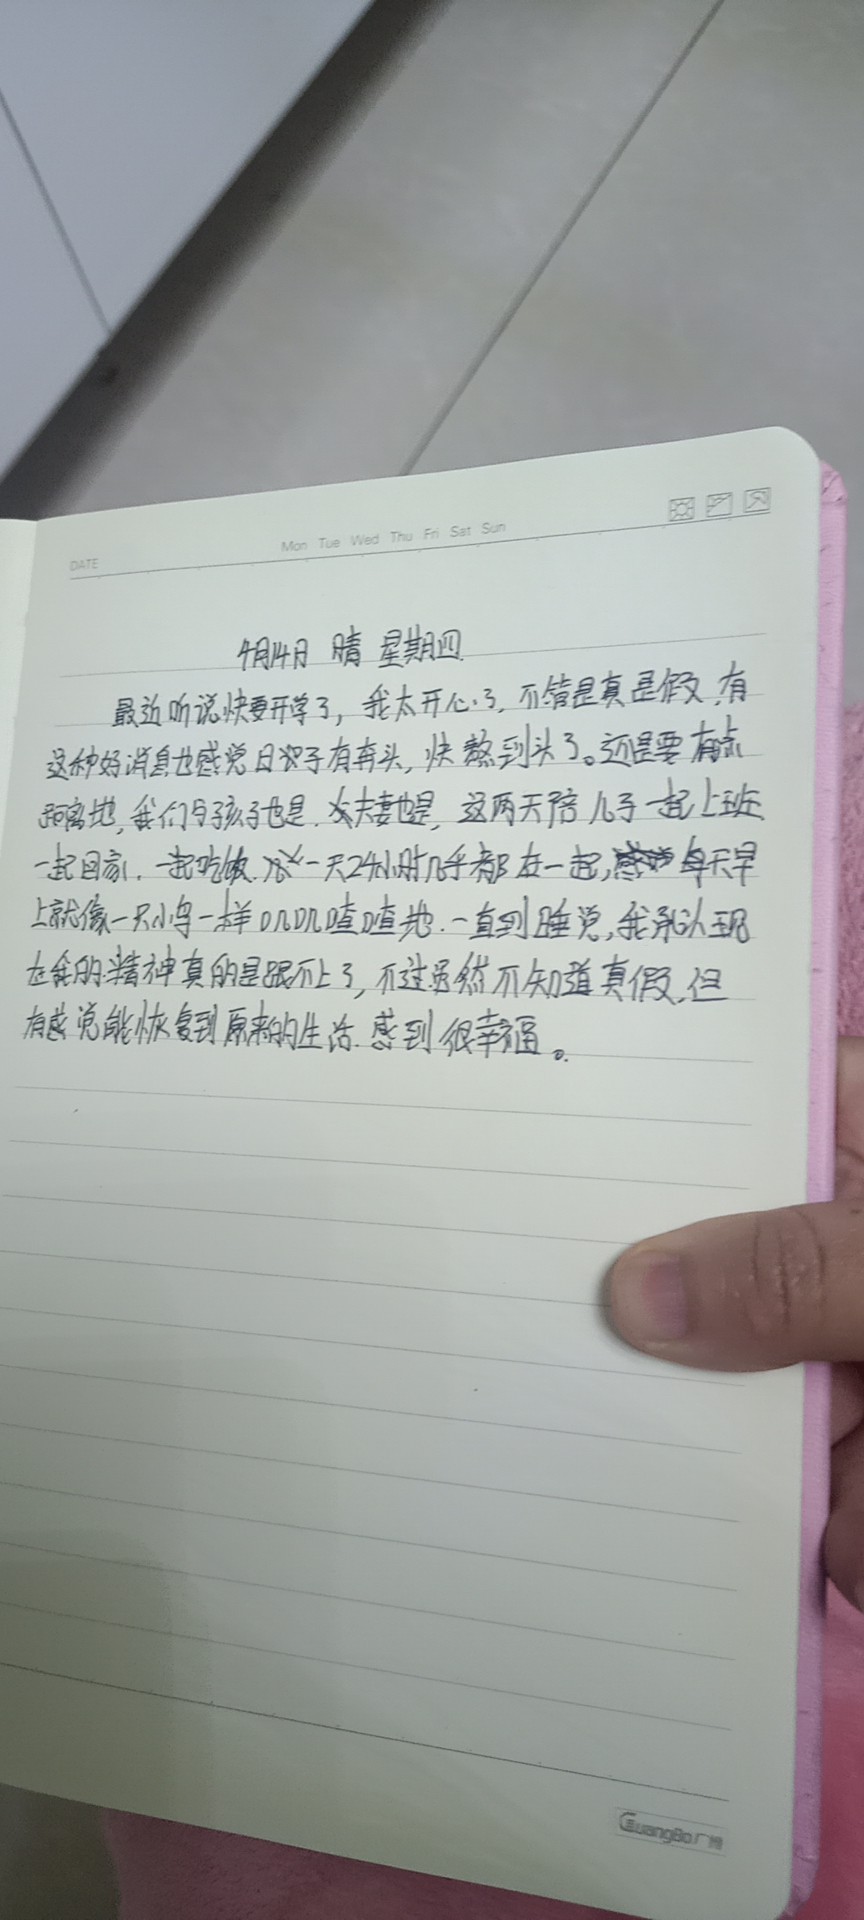 DATE
Mon Tue Wed Thu Fri Sat Sun
4月14日 晴 星期四
最近听说快要开学了，我太开心了，不管是真是假，有
这种好消息也感觉日子有奔头，快熬到头了。还是要有点
距离地，我们与孩子也是，夫妻也是，这两天陪儿子一起上班
一起回家，一起吃饭，一天24小时几乎都在一起，每天早
上就像一只小鸟一样叽叽喳喳地，一直到睡觉，我承认现
在我的精神真的是跟不上了，不过虽然不知道真假，但
有感觉能恢复到原来的生活，感到很幸福。
GuangBo广博